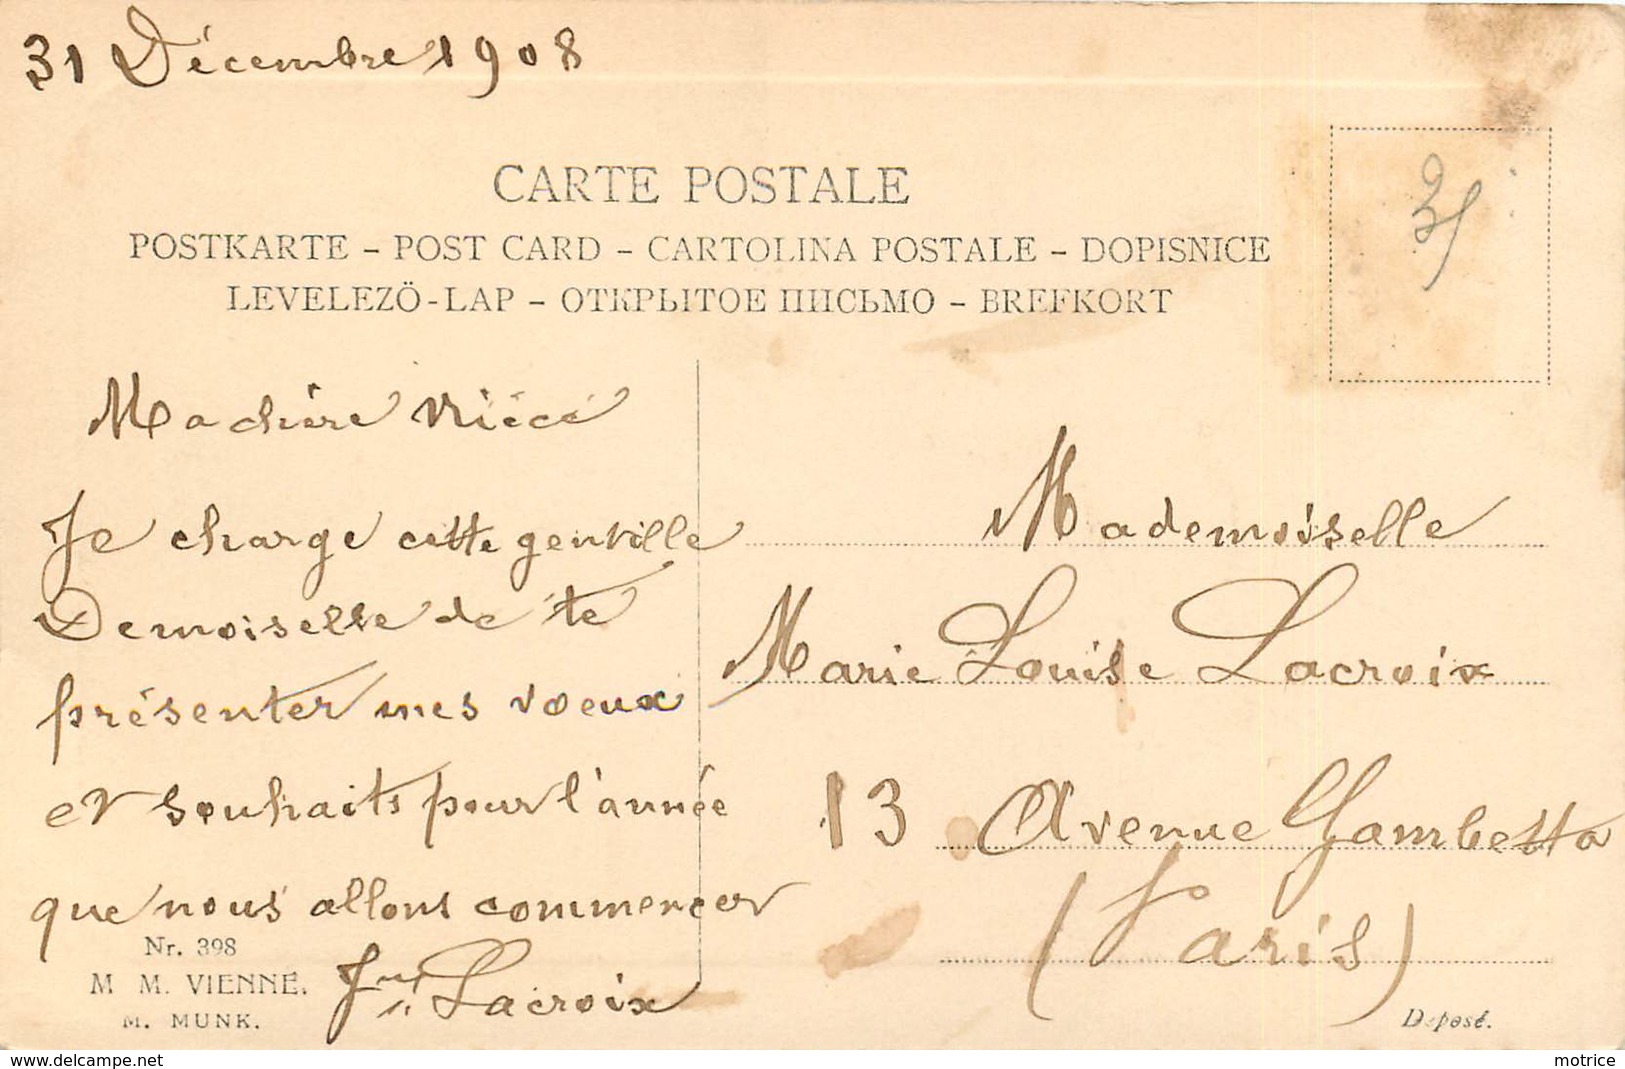 31 Décembre 1908
CARTE POSTALE
POSTKARTE – POST CARD – CARTOLINA POSTALE – DOPISNICE
LEVELEZÖ-LAP – ОТКРЫТОЕ ПИСЬМО – BREFKORT
Ma chère Nièce
Je charge cette gentille
Demoiselle de te
présenter mes voeux
et souhaits pour l'année
que nous allons commencer
Lacroix
Mademoiselle
Marie Louise Lacroix
13 Avenue Gambetta
(Paris)
Nr. 398
M. M. VIENNE.
M. MUNK.
Déposé.
www.delcampe.net
motrice